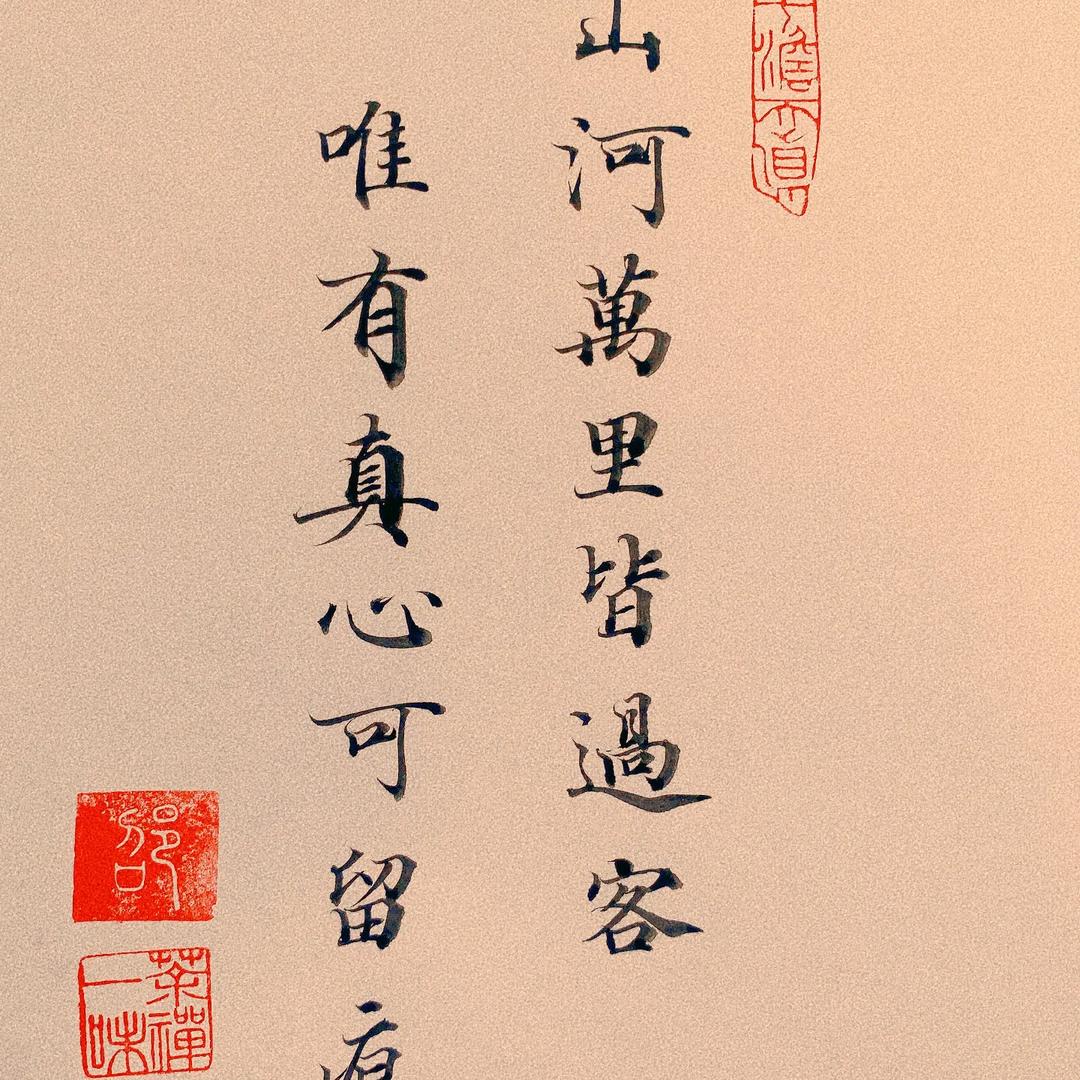 山河萬里皆過客
唯有真心可留
邵
茶禪一味